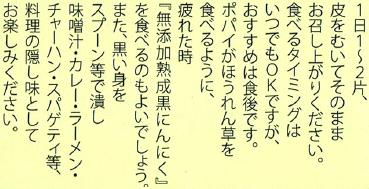 1日1～2片、
皮をむいてそのまま
お召し上がりください。
食べるタイミングは
いつでもOKですが、
おすすめは食後です。
ポパイがほうれん草を
食べるように、
疲れた時
『無添加熟成黒にんにく』
を食べるのもよいでしょう。
また、黒い身を
スプーン等で潰し
味噌汁・カレー・ラーメン・
チャーハン・スパゲティ等、
料理の隠し味として
お楽しみください。